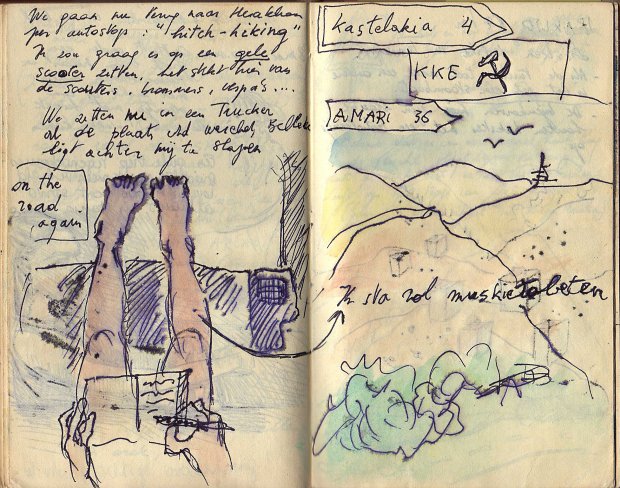 We gaan nu terug naar Heraklion
per autostop: "hitch-hiking"
Ik zou graag es op een gele
scooter zitten, het stikt hier van
de scooters, brommers, vespa's...
We zitten nu in een Trucker
al de plaats
ligt achter mij te slapen
on the
road
again
Kastelakia 4
KKE
AMARI 36
Ik sta vol muskietebeten